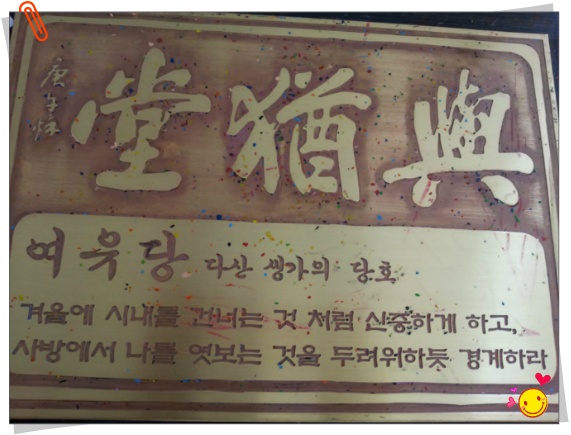 與猶堂
庚子
여유당 다산 생가의 당호
겨울에 시내를 건너는 것 처럼 신중하게 하고,
사방에서 나를 엿보는 것을 두려워하듯 경계하라